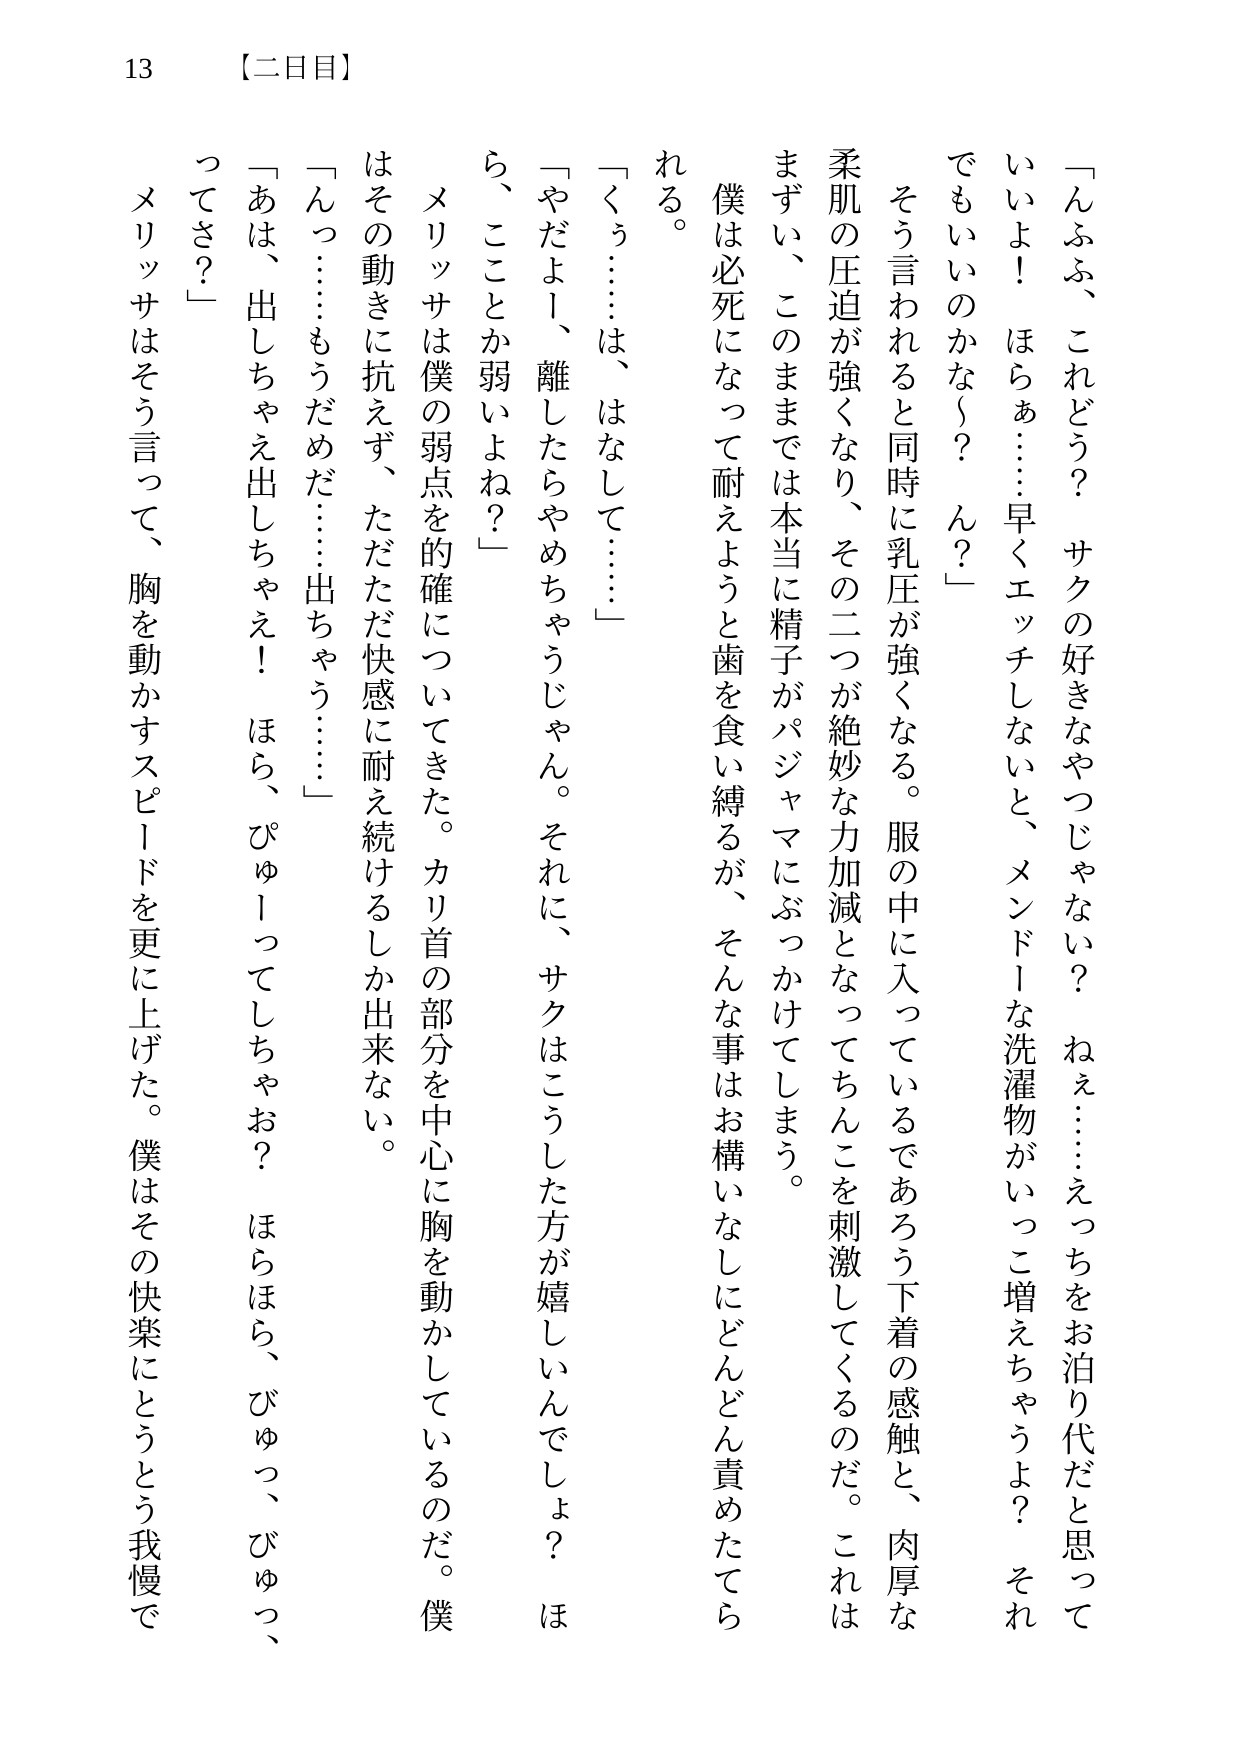 13　【二日目】
「んふふ、これどう？　サクの好きなやつじゃない？　ねぇ……えっちをお泊り代だと思って
いいよ！　ほらぁ……早くエッチしないと、メンドーな洗濯物がいっこ増えちゃうよ？　それ
でもいいのかな～？　ん？」
　そう言われると同時に乳圧が強くなる。服の中に入っているであろう下着の感触と、肉厚な
柔肌の圧迫が強くなり、その二つが絶妙な力加減となってちんこを刺激してくるのだ。これは
まずい、このままでは本当に精子がパジャマにぶっかけてしまう。
　僕は必死になって耐えようと歯を食い縛るが、そんな事はお構いなしにどんどん責めたてら
れる。
「くぅ……は、はなして……」
「やだよー、離したらやめちゃうじゃん。それに、サクはこうした方が嬉しいんでしょ？　ほ
ら、こことか弱いよね？」
　メリッサは僕の弱点を的確についてきた。カリ首の部分を中心に胸を動かしているのだ。僕
はその動きに抗えず、ただただ快感に耐え続けるしか出来ない。
「んっ……もうだめだ……出ちゃう……」
「あは、出しちゃえ出しちゃえ！　ほら、ぴゅーってしちゃお？　ほらほら、びゅっ、びゅっ、
ってさ？」
　メリッサはそう言って、胸を動かすスピードを更に上げた。僕はその快楽にとうとう我慢で